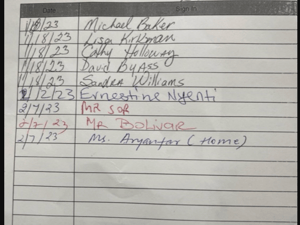 Date
1/18/23 Michael Baker
1/18/23 Lisa Kirkman
1/18/23 Cathy Holloway
1/18/23 David Byass
1/18/23 Sandra Williams
2/2/23 Ernestine Nyenti
2/7/23 MR SOR
2/7/23 MR Bolivar
2/7/23 Ms. Aryanfar (Home)